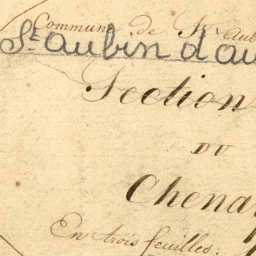 Commune de St Aub
St Aubin d'au
Section
DU
Chena
En trois feuilles.